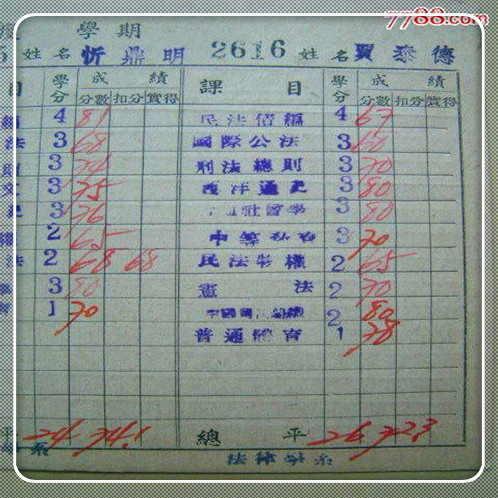 7788.com
學期
姓名 忻鼎明 2616 姓名 賈泰德
目 學分 成績 課目 學分 成績
分數 扣分 實得 分數 扣分 實得
編 4 81 民法債編 4 67
法 3 68 國際公法 3 60
則 3 74 刑法總則 3 70
3 75 西洋通史 3 80
史 3 76 社會學 3 80
權 2 65 中等 3 70
法 2 68 68 民法物權 2 65
3 80 憲法 2 70
1 70 中國 2 80
普通體育 1 78
24 74.1 總平 26 72.3
系 法律學系